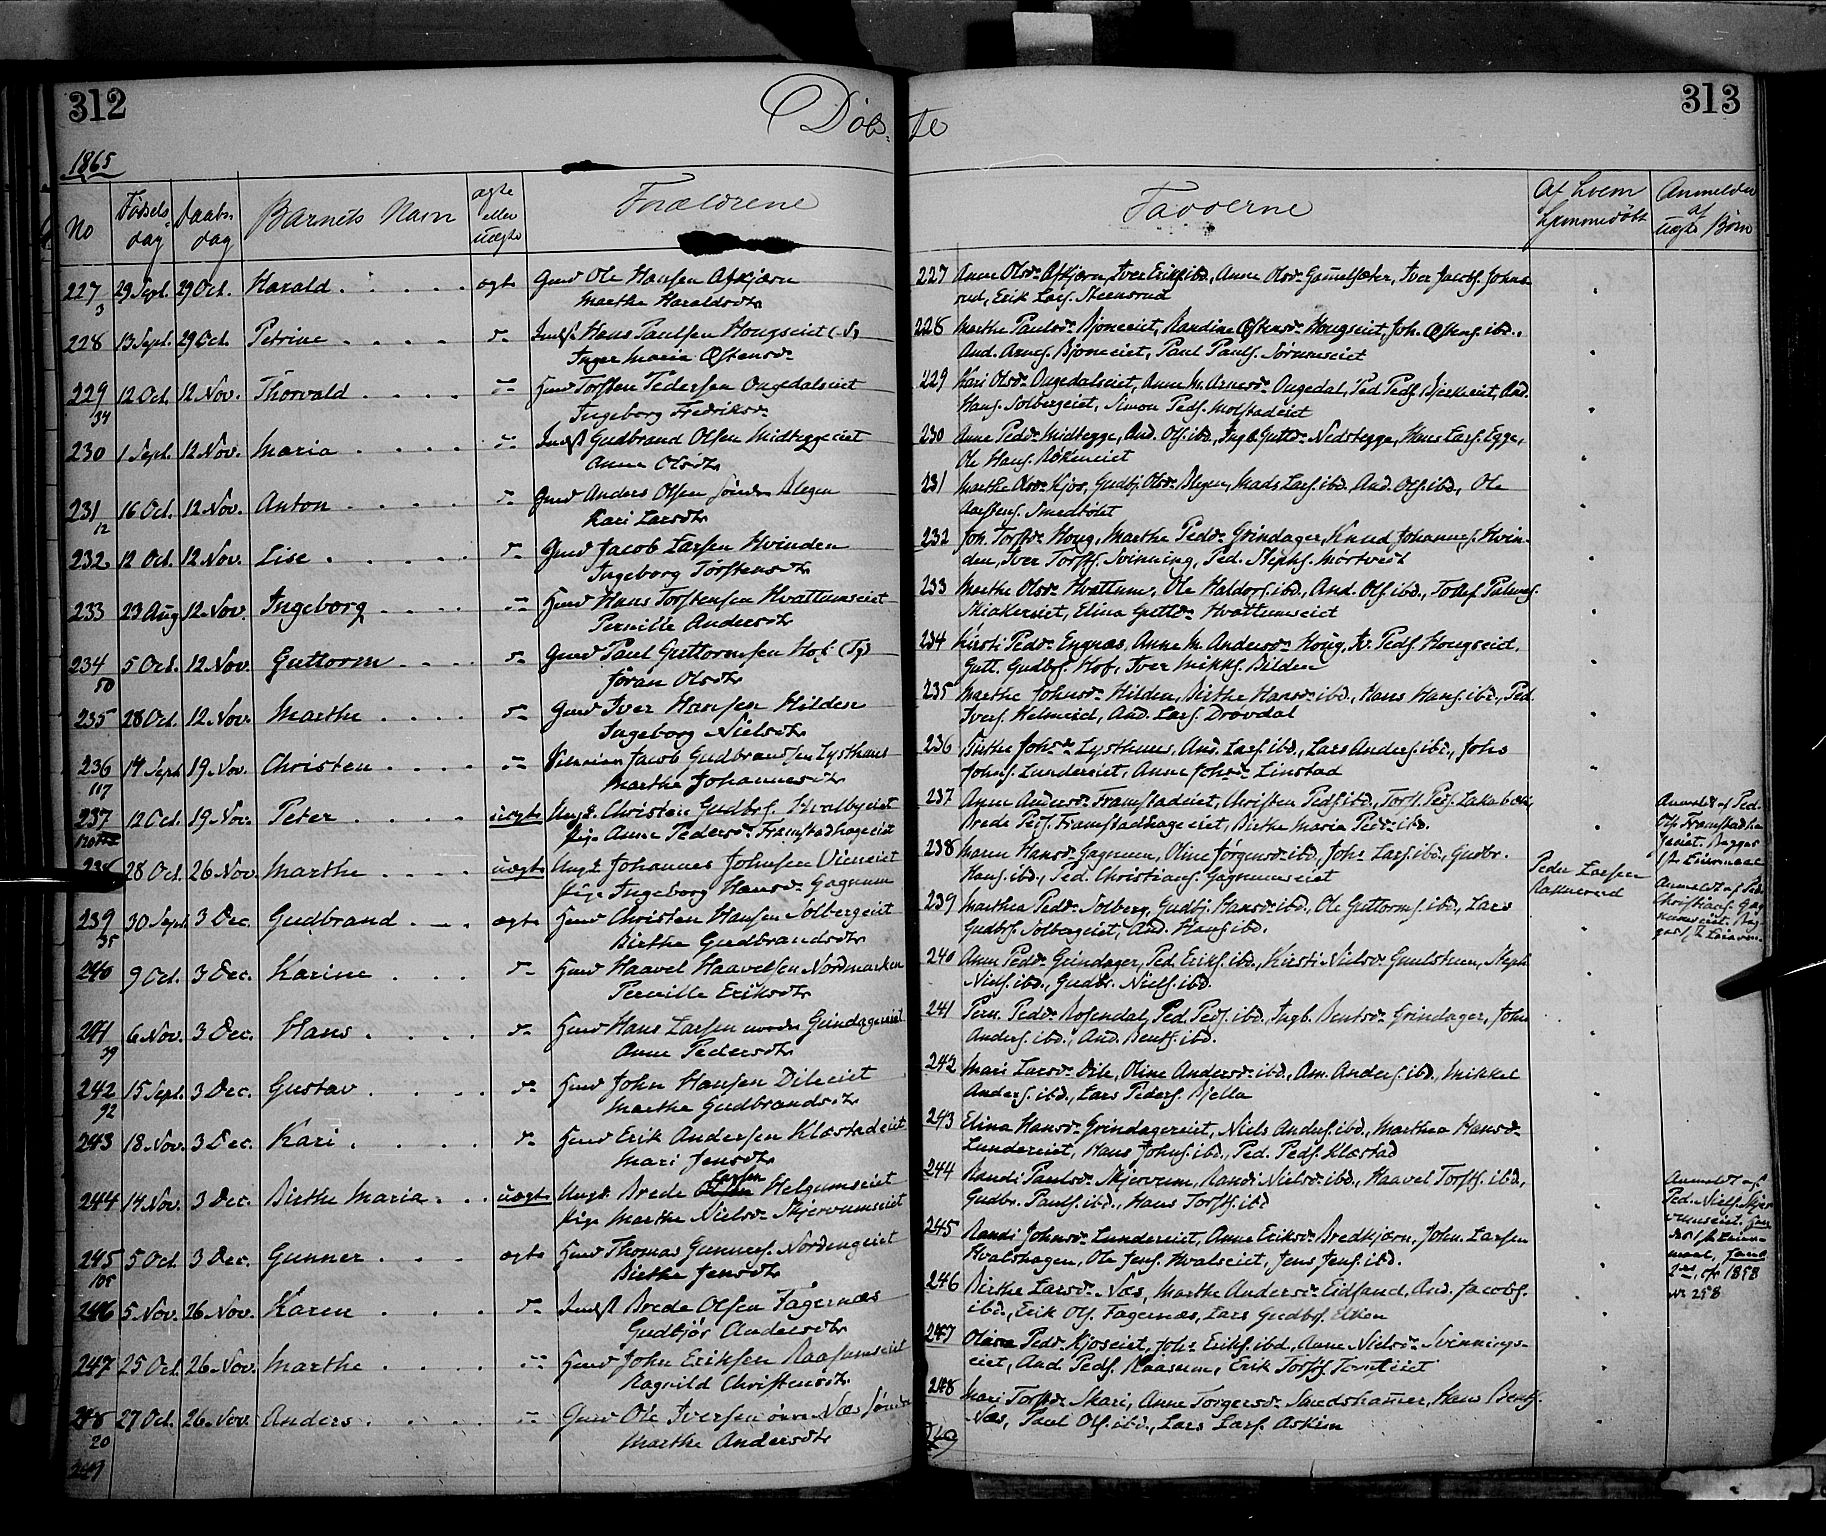 312
Døbte
313
1865
No
Fødsels dag
Daabs dag
Barnets Navn
ægte eller uægte
Forældrene
Fadderne
Af hvem hjemmedøbt
Anmelder af uægte Børn
227 29 Sept. 29 Oct. Harald ægte Gmd Ole Hansen Askjærn
3 Marthe Haraldsdtr
228 13 Sept. 29 Oct. Petrine Inds. Hans Paulsen Hougseiet
Inger Maria Østensdr
229 12 Oct. 12 Nov. Thorvald Hmd Torsten Pedersen Ongedalseiet
34 Ingeborg Fredriksdr
230 1 Sept. 12 Nov. Maria Inds. Gudbrand Olsen Midteggeeiet
Anne Olsdtr
231 16 Oct. 12 Nov. Anton Gmd Anders Olsen søndre Blegen
12 Kari Larsdtr
232 12 Oct. 12 Nov. Lise Gmd Jacob Larsen Hvinden
Ingeborg Torstensdtr
233 23 Aug 12 Nov. Ingeborg Hmd Hans Torstensen Hvattumseiet
Pernille Andersdtr
234 5 Oct. 12 Nov. Guttorm Gmd Paul Guttormsen Hof
50 Jøran Olsdtr
235 28 Oct. 12 Nov. Marthe Gmd Iver Hansen Hilden
Ingeborg Nielsdtr
236 14 Sept 19 Nov. Christen Jacob Gudbrandsen Lysthaus
117 Marthe Johannesdtr
237 12 Oct. 19 Nov. Peter uægte Ungk. Christen Gudbrs.
Pige Anne Pedersdr Framstadhageeiet
238 28 Oct. 26 Nov. Marthe uægte Ungk. Johannes Johnsen
Pige Ingeborg Hansdr Gagnum
239 30 Sept. 3 Dec. Gudbrand ægte Hmd Christen Hansen Solbergeiet
35 Birthe Gudbrandsdtr
240 9 Oct. 3 Dec. Karine Hmd Haavel Haavelsen Nordmarken
Pernille Eriksdtr
241 6 Nov. 3 Dec. Hans Hmd Hans Larsen nordre Grindagereiet
39 Anne Pedersdtr
242 15 Sept. 3 Dec. Gustav Hmd John Hansen Dihleeiet
92 Marthe Gudbrandsdtr
243 18 Nov. 3 Dec. Kari Hmd Erik Andersen Klæstadeiet
Mari Jensdtr
244 14 Nov. 3 Dec. Birthe Maria uægte Ungk. Brede Larsen Helgumseiet
Pige Marthe Nielsdr Skjervumseiet
245 5 Oct 3 Dec. Gunner ægte Hmd Thomas Gunners. Nordengeiet
105 Birthe Jensdtr
246 5 Nov. 26 Nov. Karen Inds. Brede Olsen Fagernæs
Gudbjør Andersdtr
247 25 Oct 26 Nov. Marthe Hmd John Eriksen Raasumseiet
Ragnild Christensdtr
248 27 Oct. 26 Nov. Anders Gmd Ole Iversen øvre Næs
20 Marthe Andersdtr
249
227 Anne Olsdr Askjærn, Iver Eriks. ibd., Anne Olsdr Gamelsæter, Iver Jacobs. Johns
rud, Erik Lars. Steensrud
228 Marthe Paulsdr Bjoneeiet, Randine Østensdr Hougseiet, Joh. Østens. ibd.,
And. Arnes. Bjoneeiet, Paul Pauls. Sørumseiet
229 Kari Olsdr Ongedalseiet, Anne M. Arnesdr Ongedal, Ped. Peds. And.
Hans. Solbergeiet, Simon Peds. Molstadeiet
230 Anne Pedsdr Midtegge, And. Ols. ibd., Ingb. Guttdr Nedstegge, Hans Lars. Egge,
Ole Hans. Røkeneiet
231 Marthe Olsdr Kjos, Gudbj. Olsdr Blegen, Mads Lars. ibd., And. Ols. ibd., Ole
232 Joh. Torstdr Houg, Marthe Pedsdr Grindager, Knud Johannes. Hvin-
den, Iver Torsts. Svinning, Ped. Stephs.
233 Marthe Olsdr Hvattum, Ole Haldors. ibd., And. Ols. ibd., Tollef
Elina Guttdr Hvattumseiet
234 Kirsti Pedsdr Engnæs, Anne M. Andersdr Houg, Peds. Hougseiet,
Gutt. Gudbrs. Hof, Iver Mikks. Bilden
235 Marthe Johnsdr Hilden, Birthe Hansdr ibd., Hans Hans. ibd., Ped.
Ivers. And. Lars. Drøvdal
236 Birthe Johsdr Lysthuus, And. Lars. ibd., Lars Anders. ibd., Johs
Johns. Lundereiet, Anne Johsdr Linstad
237 Anne Andersdr Framstadeiet, Christen Peds. ibd., Torst. Peds.
Brede Peds. Framstadhageeiet, Birthe Maria Pedsdr ibd.
238 Maren Hansdr Gagnum, Oline Jørgensdr ibd., Johs Lars. ibd., Gudbr.
Hans. ibd., Ped. Christians. Gagnumseiet
Peder Larsen
239 Marthea Pedsdr Solberg, Gudbj. Hansdr ibd., Ole Guttorms. ibd., Lars
Gudbrs. Solbergeiet, And. Hans. ibd.
240 Anne Pedsdr Grindager, Ped. Eriks. ibd., Kirsti Nielsdr Steph.
Niels. ibd., Gudbr. Niels. ibd.
241 Pern. Pedsdr Rosendal, Ped. Peds. ibd., Ingb. Bentsdr Grindager, John
Anders. ibd., And. Bents. ibd.
242 Mari Larsdr Dihle, Oline Andersdr ibd., Am. Anders. ibd., Mikkel
Anders. ibd., Lars Peders. Bjella
243 Elina Hansdr Grindagereiet, Niels Anders. ibd., Marthea Hansdr
Lundereiet, Hans Johns. ibd., Ped. Peds. Klæstad
244 Randi Paulsdr Skjervum, Randi Nielsdr ibd., Haavel Torsts. ibd.,
Gudbr. Pauls. ibd., Hans Torsts. ibd
245 Randi Johnsdr Lundereiet, Anne Eriksdr Bredkjærn, John Larsen
Hvalshagen, Ole Jens. Hvalseiet, Jens Jens. ibd.
246 Birthe Larsdr Næs, Marthe Andersdr Eidsand, And. Jacobs.
ibd., Erik Ols. Fagernæs, Lars Gudbrs.
247 Oliana Pedsdr Kjoseiet, Johs Eriks. ibd., Anne Nielsdr Svinnings-
eiet, And. Peds. Raasum, Erik Torsts.
248 Mari Torstdr Skari, Anne Torgersdr Smedshammer, Hans Bents.
Næs, Paul Ols. ibd., Lars Lars. Askim
Anmeldt af Ped.
Anmeldt af Ped.
Christians. Gag
Anmeldt af
Ped. Niels. Skjer
1858
Nr 258